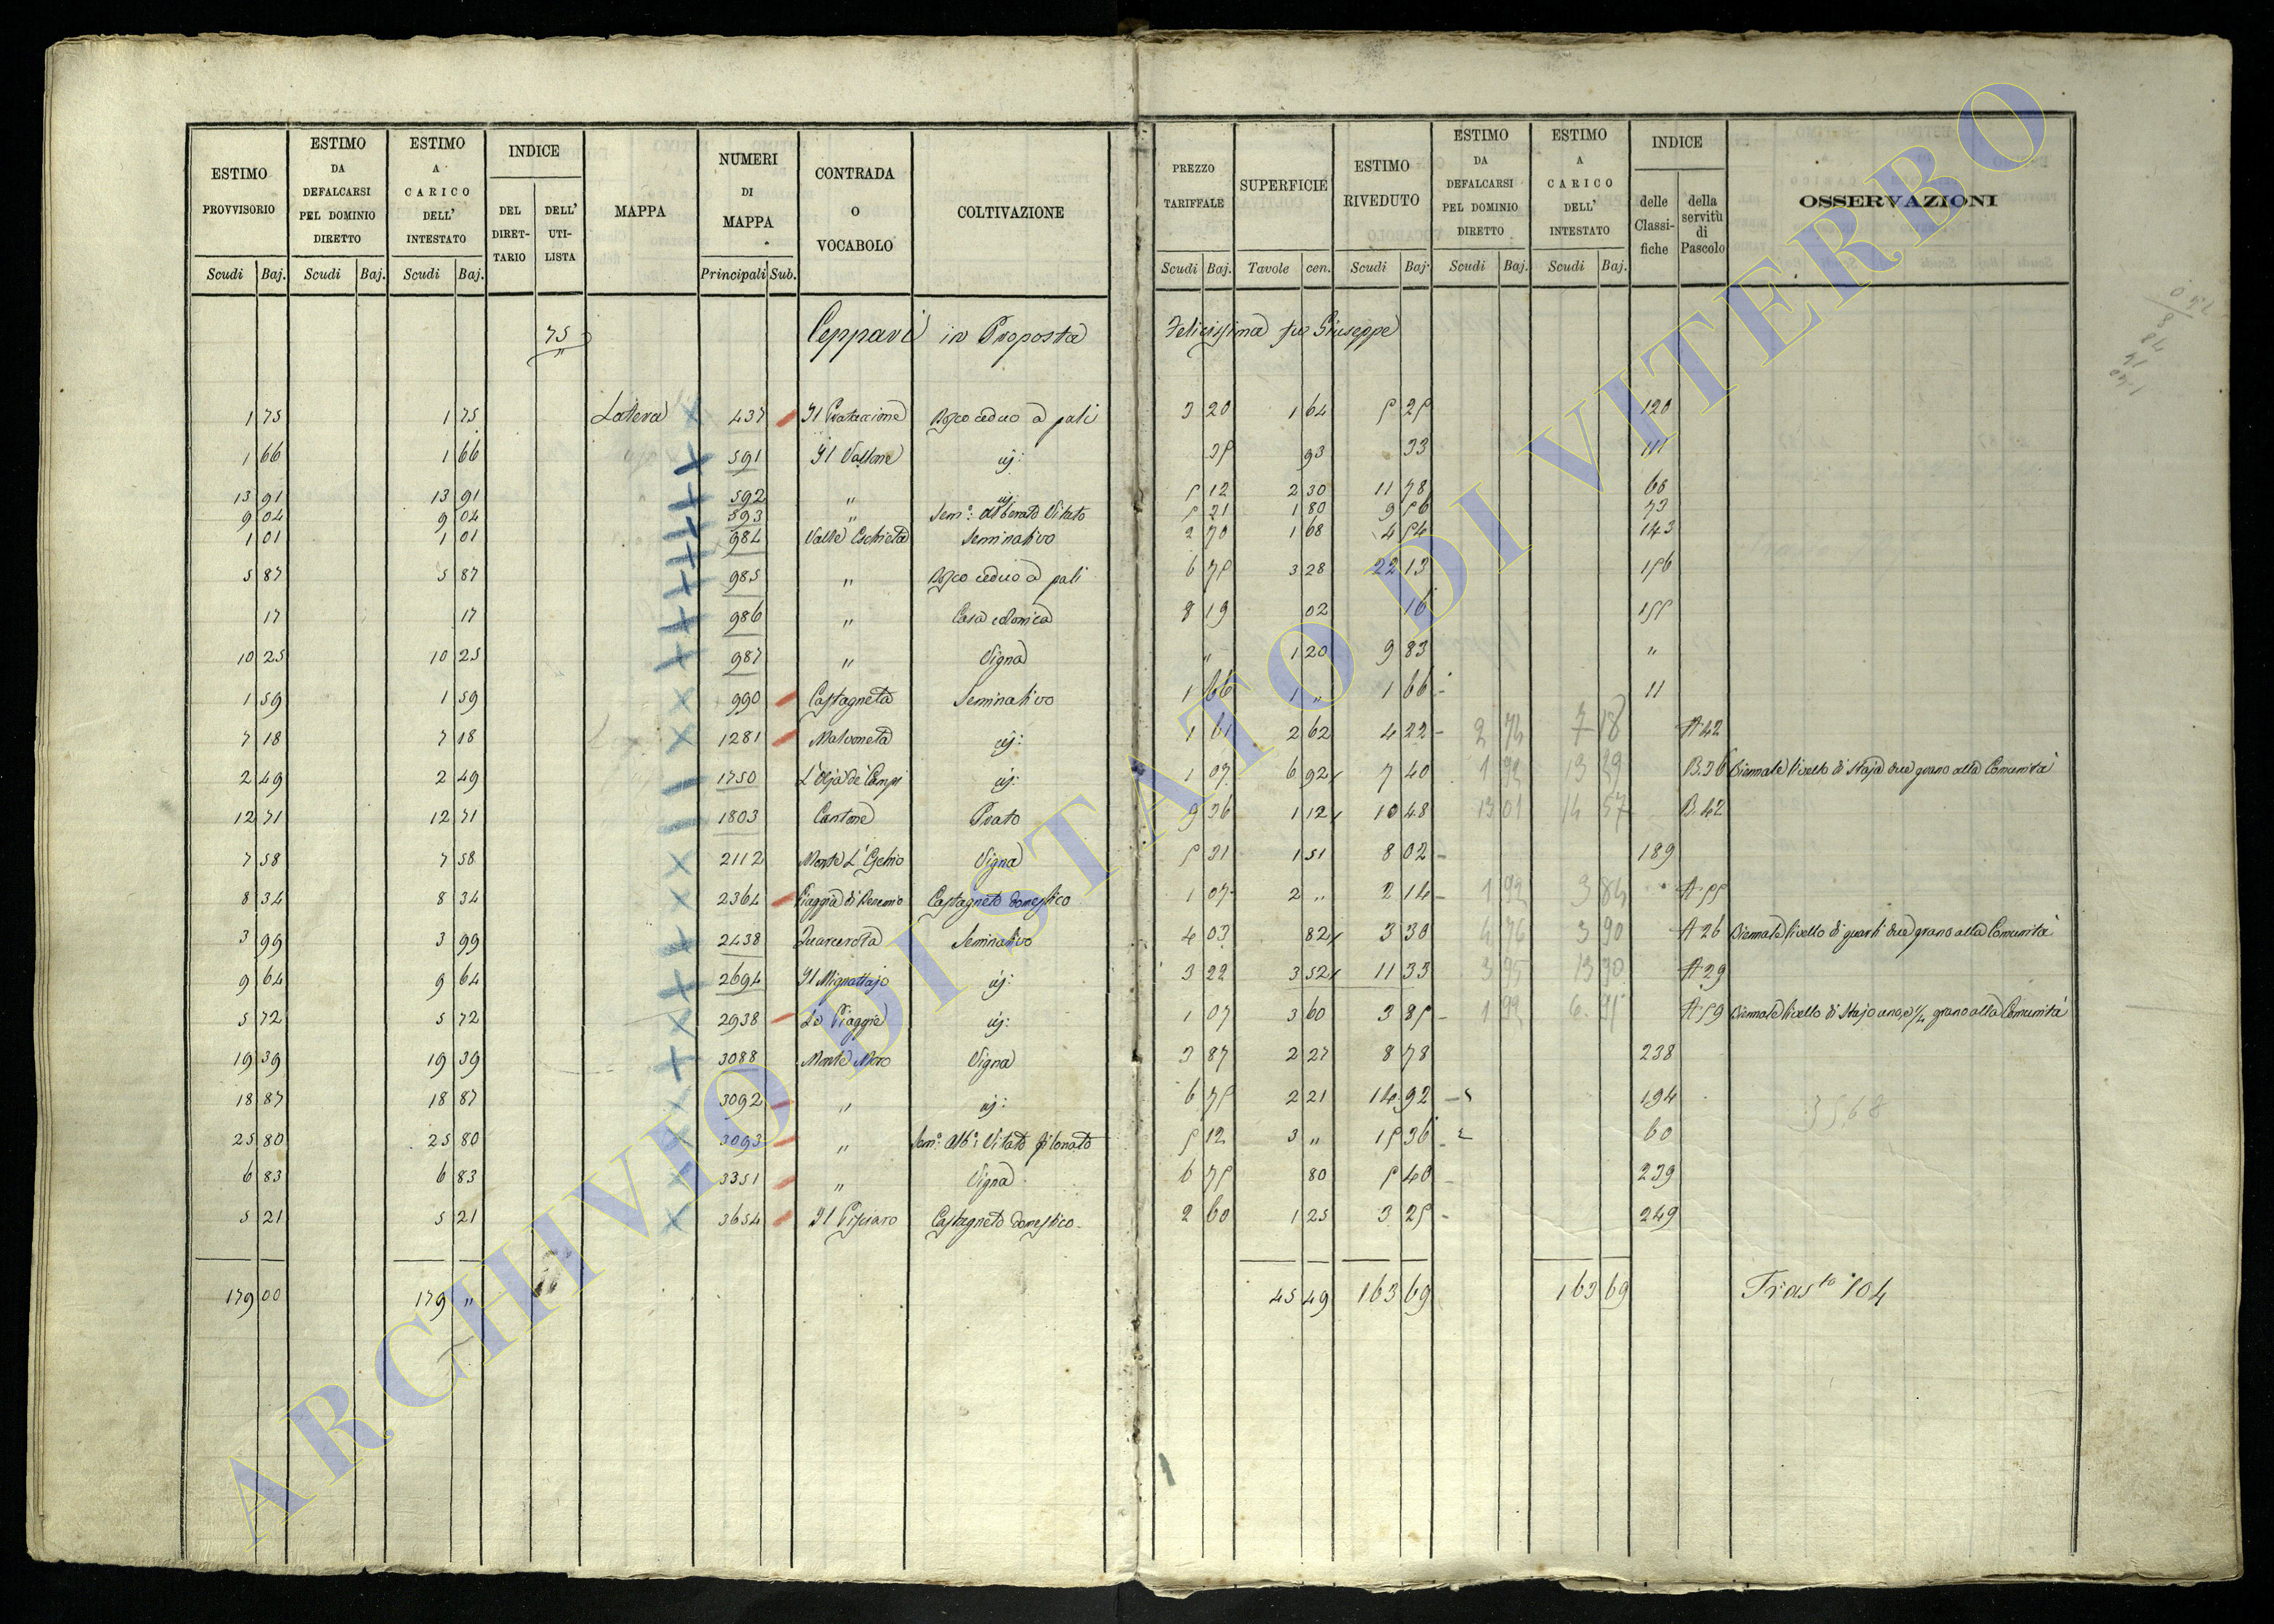 ESTIMO PROVVISORIO | ESTIMO DA DEFALCARSI PEL DOMINIO DIRETTO | ESTIMO A CARICO DELL' INTESTATO | INDICE DEL DIRETTARIO | DELL' UTILISTA | MAPPA | NUMERI DI MAPPA | CONTRADA O VOCABOLO | COLTIVAZIONE | PREZZO TARIFFALE | SUPERFICIE | ESTIMO RIVEDUTO | ESTIMO DA DEFALCARSI PEL DOMINIO DIRETTO | ESTIMO A CARICO DELL' INTESTATO | INDICE delle Classifiche | della servitù di Pascolo | OSSERVAZIONI
Scudi Baj. | Scudi Baj. | Scudi Baj. | Principali Sub. | Scudi Baj. | Tavole cen. | Scudi Baj | Scudi Baj. | Scudi Baj.
75 Ceppari in Proposta Felicissima fu Giuseppe
1 75 | 1 75 | Latera | 437 | Il | Bosco ceduo a pali | 3 20 | 1 64 | 5 25 | 120
1 66 | 1 66 | 591 | Il Vallone | id: | 35 | 93 | 33 | 111
13 91 | 13 91 | 592 | " | id: | 5 12 | 2 30 | 11 78 | 60
9 04 | 9 04 | 593 | " | Sem.o Alberato Vitato | 5 21 | 1 80 | 9 56 | 73
1 01 | 1 01 | 984 | Valle | Seminativo | 2 70 | 1 68 | 4 54 | 143
5 87 | 5 87 | 985 | " | Bosco ceduo a pali | 6 75 | 3 28 | 22 13 | 156
17 | 17 | 986 | " | Casa colonica | 8 19 | 02 | 16 | 155
10 25 | 10 25 | 987 | " | Vigna | " | 1 20 | 9 83 | "
1 59 | 1 59 | 990 | Castagneta | Seminativo | 1 66 | 1 " | 1 66 | 11
7 18 | 7 18 | 1281 | Malvoneta | id: | 1 61 | 2 62 | 4 22 | 2 74 | 7 18 | A 42
2 49 | 2 49 | 1750 | id: | 1 07 | 6 92 | 7 40 | 13 29 | B.36 | Biennale livello di Staja due grano alla Comunità
12 71 | 12 71 | 1803 | Cantone | Prato | 9 36 | 1 12 | 10 48 | 13 01 | 14 57 | B.42
7 58 | 7 58 | 2112 | Monte | Vigna | 5 31 | 1 51 | 8 02 | 189
8 34 | 8 34 | 2364 | Piaggia di | Castagneto domestico | 1 07 | 2 " | 2 14 | 1 92 | 3 84 | A 55
3 99 | 3 99 | 2438 | Seminativo | 4 03 | 82 | 3 30 | 4 76 | 3 90 | A 26 | Biennale livello di quarti due grano alla Comunità
9 64 | 9 64 | 2694 | Il Mignattajo | id: | 3 22 | 3 52 | 11 33 | 3 95 | 13 90 | A 29
5 72 | 5 72 | 2938 | Le Piaggie | id: | 1 07 | 3 60 | 3 85 | 1 92 | A 59 | Biennale livello di Stajo uno, e 1/2 grano alla Comunità
19 39 | 19 39 | 3088 | Monte Moro | Vigna | 3 87 | 2 27 | 8 78 | 238
18 87 | 18 87 | 3092 | " | id: | 6 75 | 2 21 | 14 92 | 194 | 3568
25 80 | 25 80 | 3093 | " | Sem.o Alb.o Vitato | 5 12 | 3 " | 15 36 | 60
6 83 | 6 83 | 3351 | " | Vigna | 6 75 | 80 | 5 40 | 239
5 21 | 5 21 | 3654 | Il Pisciaro | Castagneto domestico | 2 60 | 1 25 | 3 25 | 249
179 00 | 179 " | 45 49 | 163 69 | 163 69 | 104
ARCHIVIO DI STATO DI VITERBO